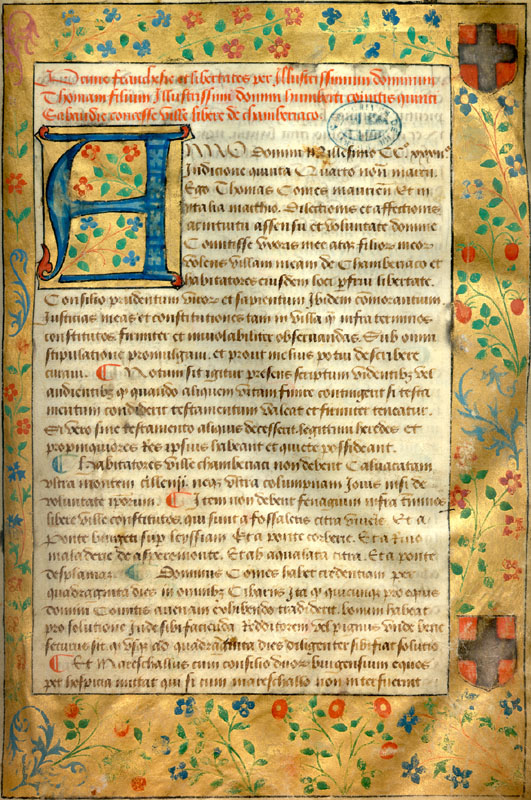 franchesie et libertates per Illustrissimum dominum
Thomam filium Illustrissimi domini humberti comitis
Sabaudie concesse ville libere de chamberiaco
ANNO Domini Millesimo CC°
Indicione quinta Quarto non
Ego Thomas Comes maurien Et in
Italia Dilectionis et affectionis
assensu et voluntate domine
Comitisse meor
volens villam meam de Chamberiaco et
habitatores eiusdem loci libertate.
Consilio prudentum viror et sapientum Ibidem comorantium
Justicias meas et constitutiones tam in villa infra terminos
constitutos firmiter et inviolabiliter observandas. Sub omni
stipulatione promulgavi. et prout melius potui describere
curavi. Notum sit igitur presens scriptum videntibz vel
audientibz quando aliquem vitam finire contingerit si testa
mentum condiderit testamentum valeat et firmiter teneatur.
Si vero sine testamento aliquis decesserit. legitimi heredes et
propinquiores Res ipsius habeant et quiete possideant.
Habitatores ville chamberiaci non debent Calvacatam
ultra montem neque ultra columpnam Jovis nisi de
voluntate iporum Item non debent infra
libere ville constitutos. qui sunt a citra Et a
ponte Et a ponte Et a Rivo
maladerie de aspero monte. Et ab citra Et a ponte
Dominus Comes habet credentiam per
quadraginta dies in omnibz Cibariis Ita quicumqz pro opus
domini Comitis tradidit. bonum habeat
pro solutione inde sibi facienda vel pignus
securus sit ad quadraginta dies diligenter sibi fiat solutio
Et Mareschallus cum consilio duor burgensium equos
per hospicia mittat qui si cum mareschallo non interfuerint